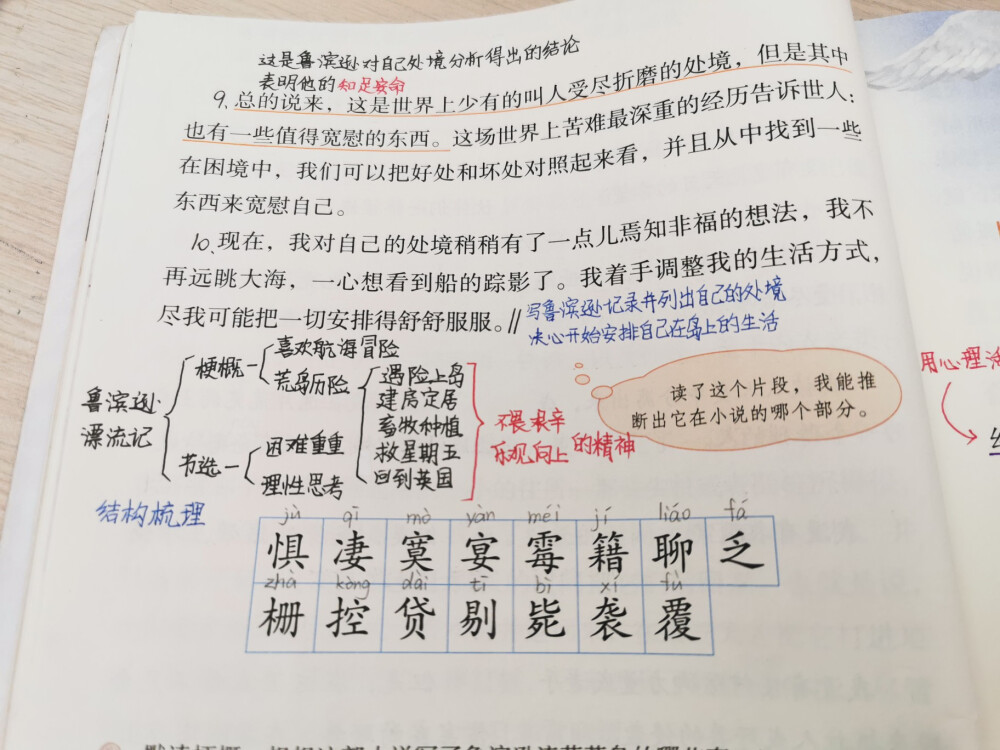 这是鲁滨逊对自己处境分析得出的结论
表明他的知足安命
9.总的说来，这是世界上少有的叫人受尽折磨的处境，但是其中
也有一些值得宽慰的东西。这场世界上苦难最深重的经历告诉世人：
在困境中，我们可以把好处和坏处对照起来看，并且从中找到一些
东西来宽慰自己。
10、现在，我对自己的处境稍稍有了一点儿焉知非福的想法，我不
再远眺大海，一心想看到船的踪影了。我着手调整我的生活方式，
尽我可能把一切安排得舒舒服服。//
写鲁滨逊记录并列出自己的处境
决心开始安排自己在岛上的生活
鲁滨逊
漂流记
梗概
喜欢航海冒险
荒岛历险
遇险上岛
建房定居
畜牧种植
救星期五
回到英国
节选
困难重重
理性思考
不畏艰辛
乐观向上的精神
结构梳理
读了这个片段，我能推
断出它在小说的哪个部分。
用心理活
jù qī mò yàn méi jí liáo fá
惧 凄 寞 宴 霉 籍 聊 乏
zhà kòng dài tī bì xí fù
栅 控 贷 剔 毙 袭 覆